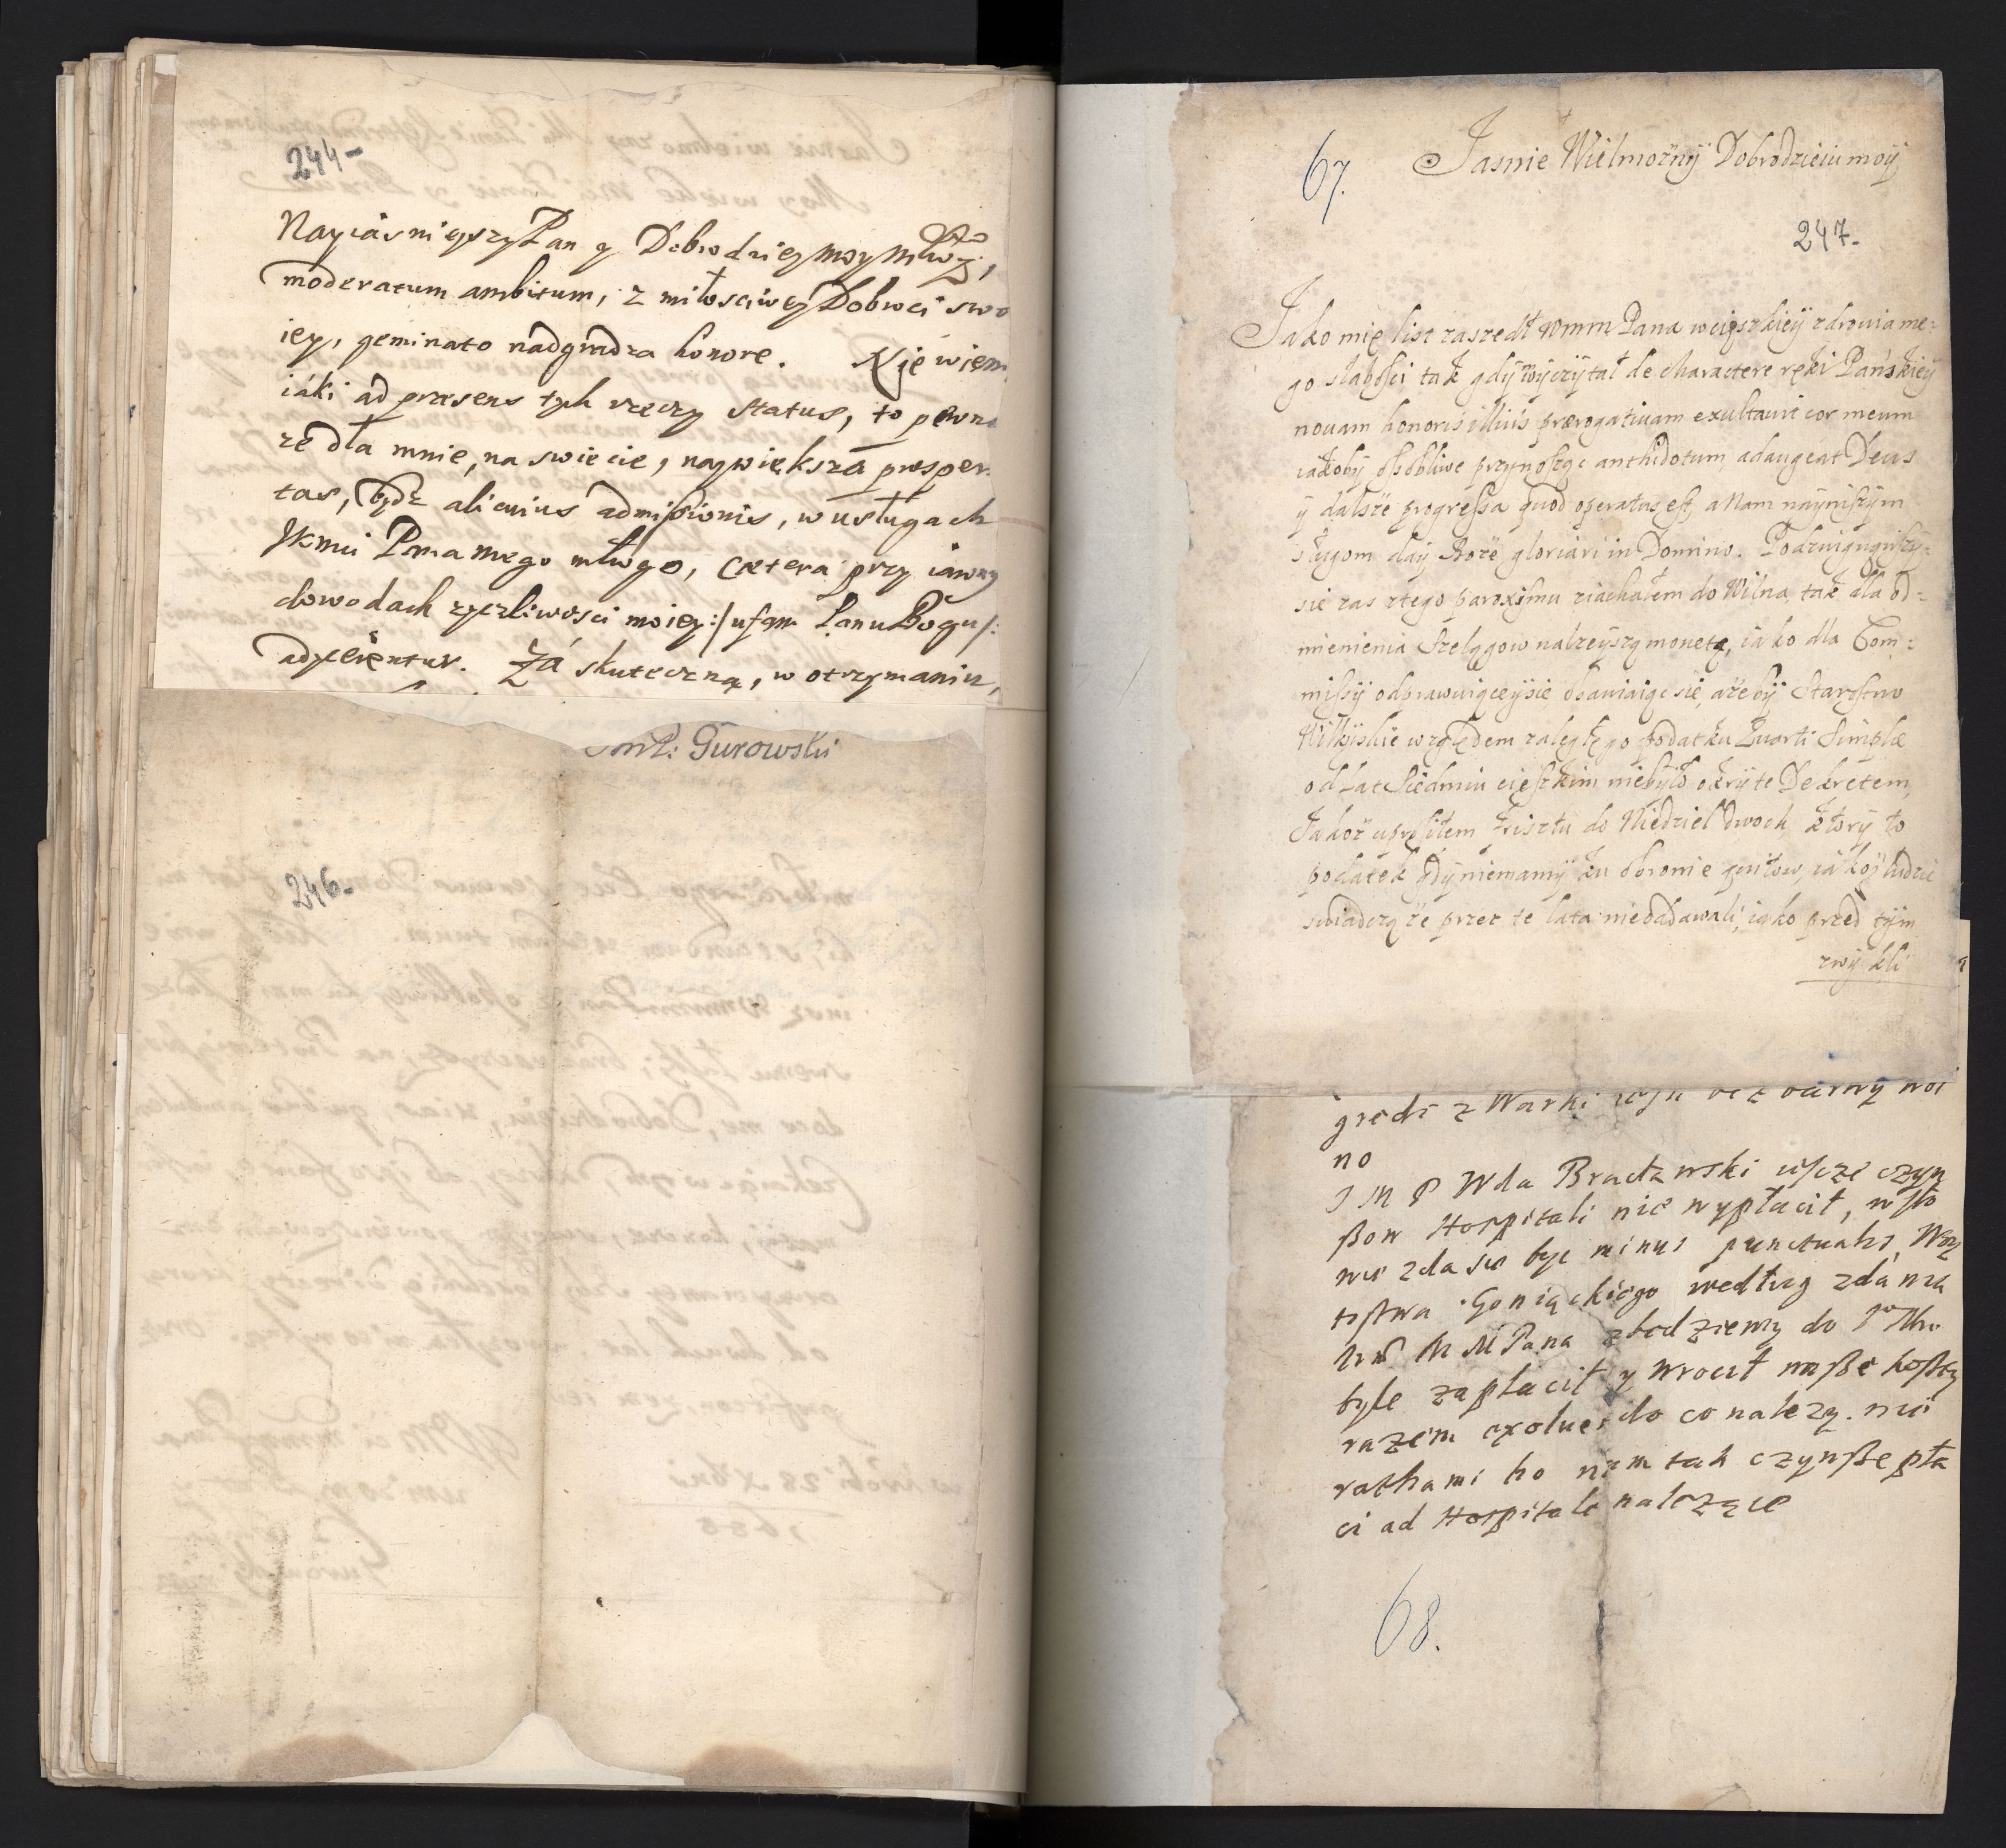 244-
Nayiásnieyszy Pan y Dobrodziey moy Młwy,
moderatum ambitum, z miłosciwey Dobroci swo
iey, geminato nadgradza honore. Nie wiem
iáki ad præsens tych rzeczy status, to pewna
ze dla mnie, na swiecie, naywiększa prosper-
tas, bydz alicuius admissionis, w usługach
JKMci Pana mego młwgo, cætera przy iawny
dowodach zyczliwosci moiey :/ ufam Panu Bogu /:
adiicientur. Zá skuteczną, w otrzymaniu,
Gurowski
246-
67.
Jasnie Wielmożnÿ Dobrodzieiu moÿ
247-
Jako mię list zaszedł WMM Pana w cięszkieÿ zdrowia me:
go słabości tak gdÿ wÿczÿtał de charactere ręki Pánskieÿ
nouam honoris illius prærogatiuam exultauit cor meum
iakobÿ ossobliwe przynosząc anthidotum, adaugeat Deus
ÿ dalsze progressa quod operatus est, a Nam naÿniszÿm
sługom daÿ Boże gloriari in Domino. Podzwignąwszÿ:
sie zas z tego paroxismu ziachałem do Wilna, tak dla od=
mienienia Szelągow na lzeÿszą monetę, iako dla Com:
missÿ odprawuiąceÿ sie obawiaiąc sie, ażebÿ Starostwo
Wilkÿskie względem zaległego podatku Quarti Simplæ
od Lat Siedmiu cięszkim niebÿło okrÿte Dekretem,
Jakoż uprosiłem Frisztu do Niedziel dwoch, ktorÿ to
podatek gdÿ niemamÿ ku obronie quitow, iakoÿ ludzie
swiadczą że przez te lata nieoddawali, iako przed tÿm
zwÿkli
gredi z Warki
no
J M P Wda Bracławski iescze czyn
ßow Hospitali nie wypłacił, w sło
wie zda sie byc minus punctualis,
tostwa Goniąckiego według zdánia
W M M Pana
tyle zapłacił y wrocił nasze koszty
razem exoluendo co nalezy. nie
rathami bo nam tak czynße pła
ci ad Hospitale nalezące
68.